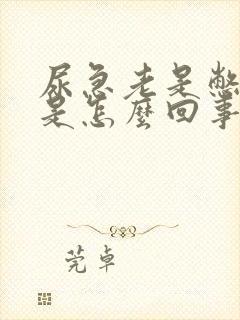 尿急老是憋
是怎麼回事
莞卓